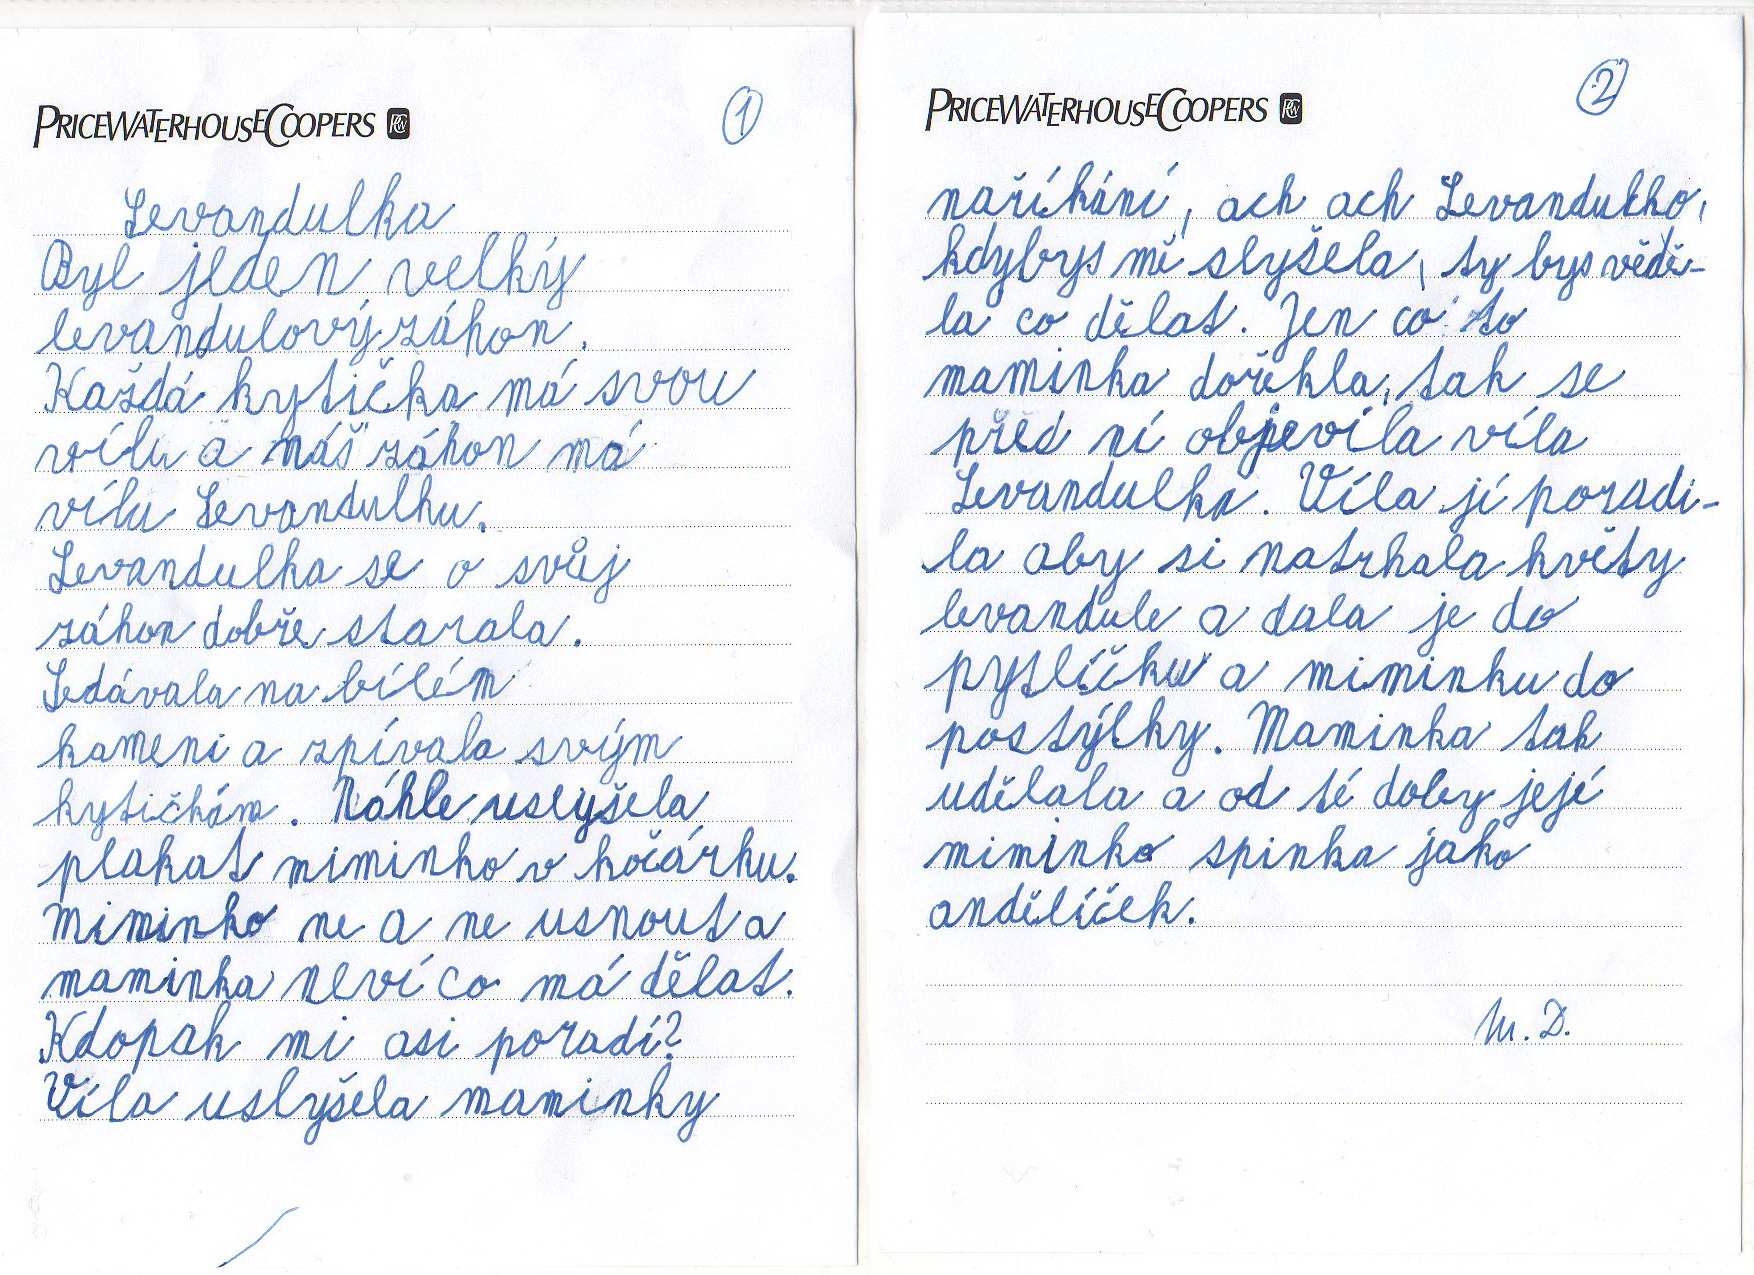 PRICEWATERHOUSECOOPERS PwC
1
Levandulka
Byl jeden velký
levandulový záhon.
Každá kytička má svou
vílu a náš záhon má
vílu Levandulku.
Levandulka se o svůj
záhon dobře starala.
Sedávala na bílém
kameni a zpívala svým
kytičkám. Náhle uslyšela
plakat miminko v kočárku.
Miminko ne a ne usnout a
maminka neví co má dělat.
Kdopak mi asi poradí?
Víla uslyšela maminky
PRICEWATERHOUSECOOPERS PwC
2
naříkání, ach ach Levandulko,
kdybys mě slyšela, ty bys vědě-
la co dělat. Jen co to
maminka dořekla, tak se
před ní objevila víla
Levandulka. Víla jí poradi-
la aby si natrhala květy
levandule a dala je do
pytlíčku a miminku do
postýlky. Maminka tak
udělala a od té doby její
miminko spinka jako
andělíček.
M. D.